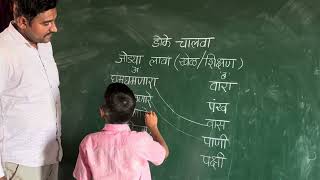 डोके चालवा
जोड्या लावा (खेळ/शिक्षण)
अ ब
घमघमणारा वारा
पंख
वास
पाणी
पक्षी